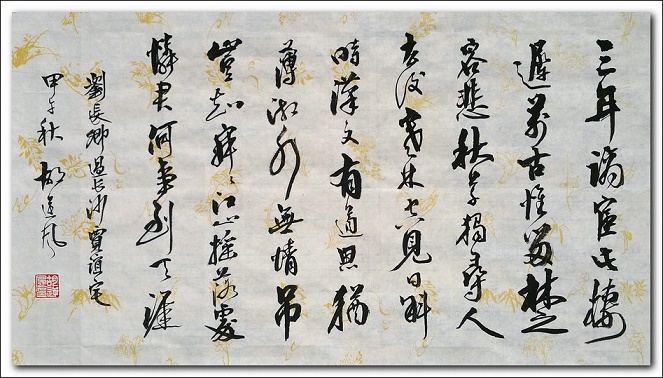 三年謫宦此棲
遲萬古惟留楚
客悲秋草獨尋人
去後寒林空見日斜
時漢文有道恩猶
薄湘水無情吊
豈知寂〻江山搖落處
憐君何事到天涯
劉長卿過長沙賈誼宅
甲午秋 胡